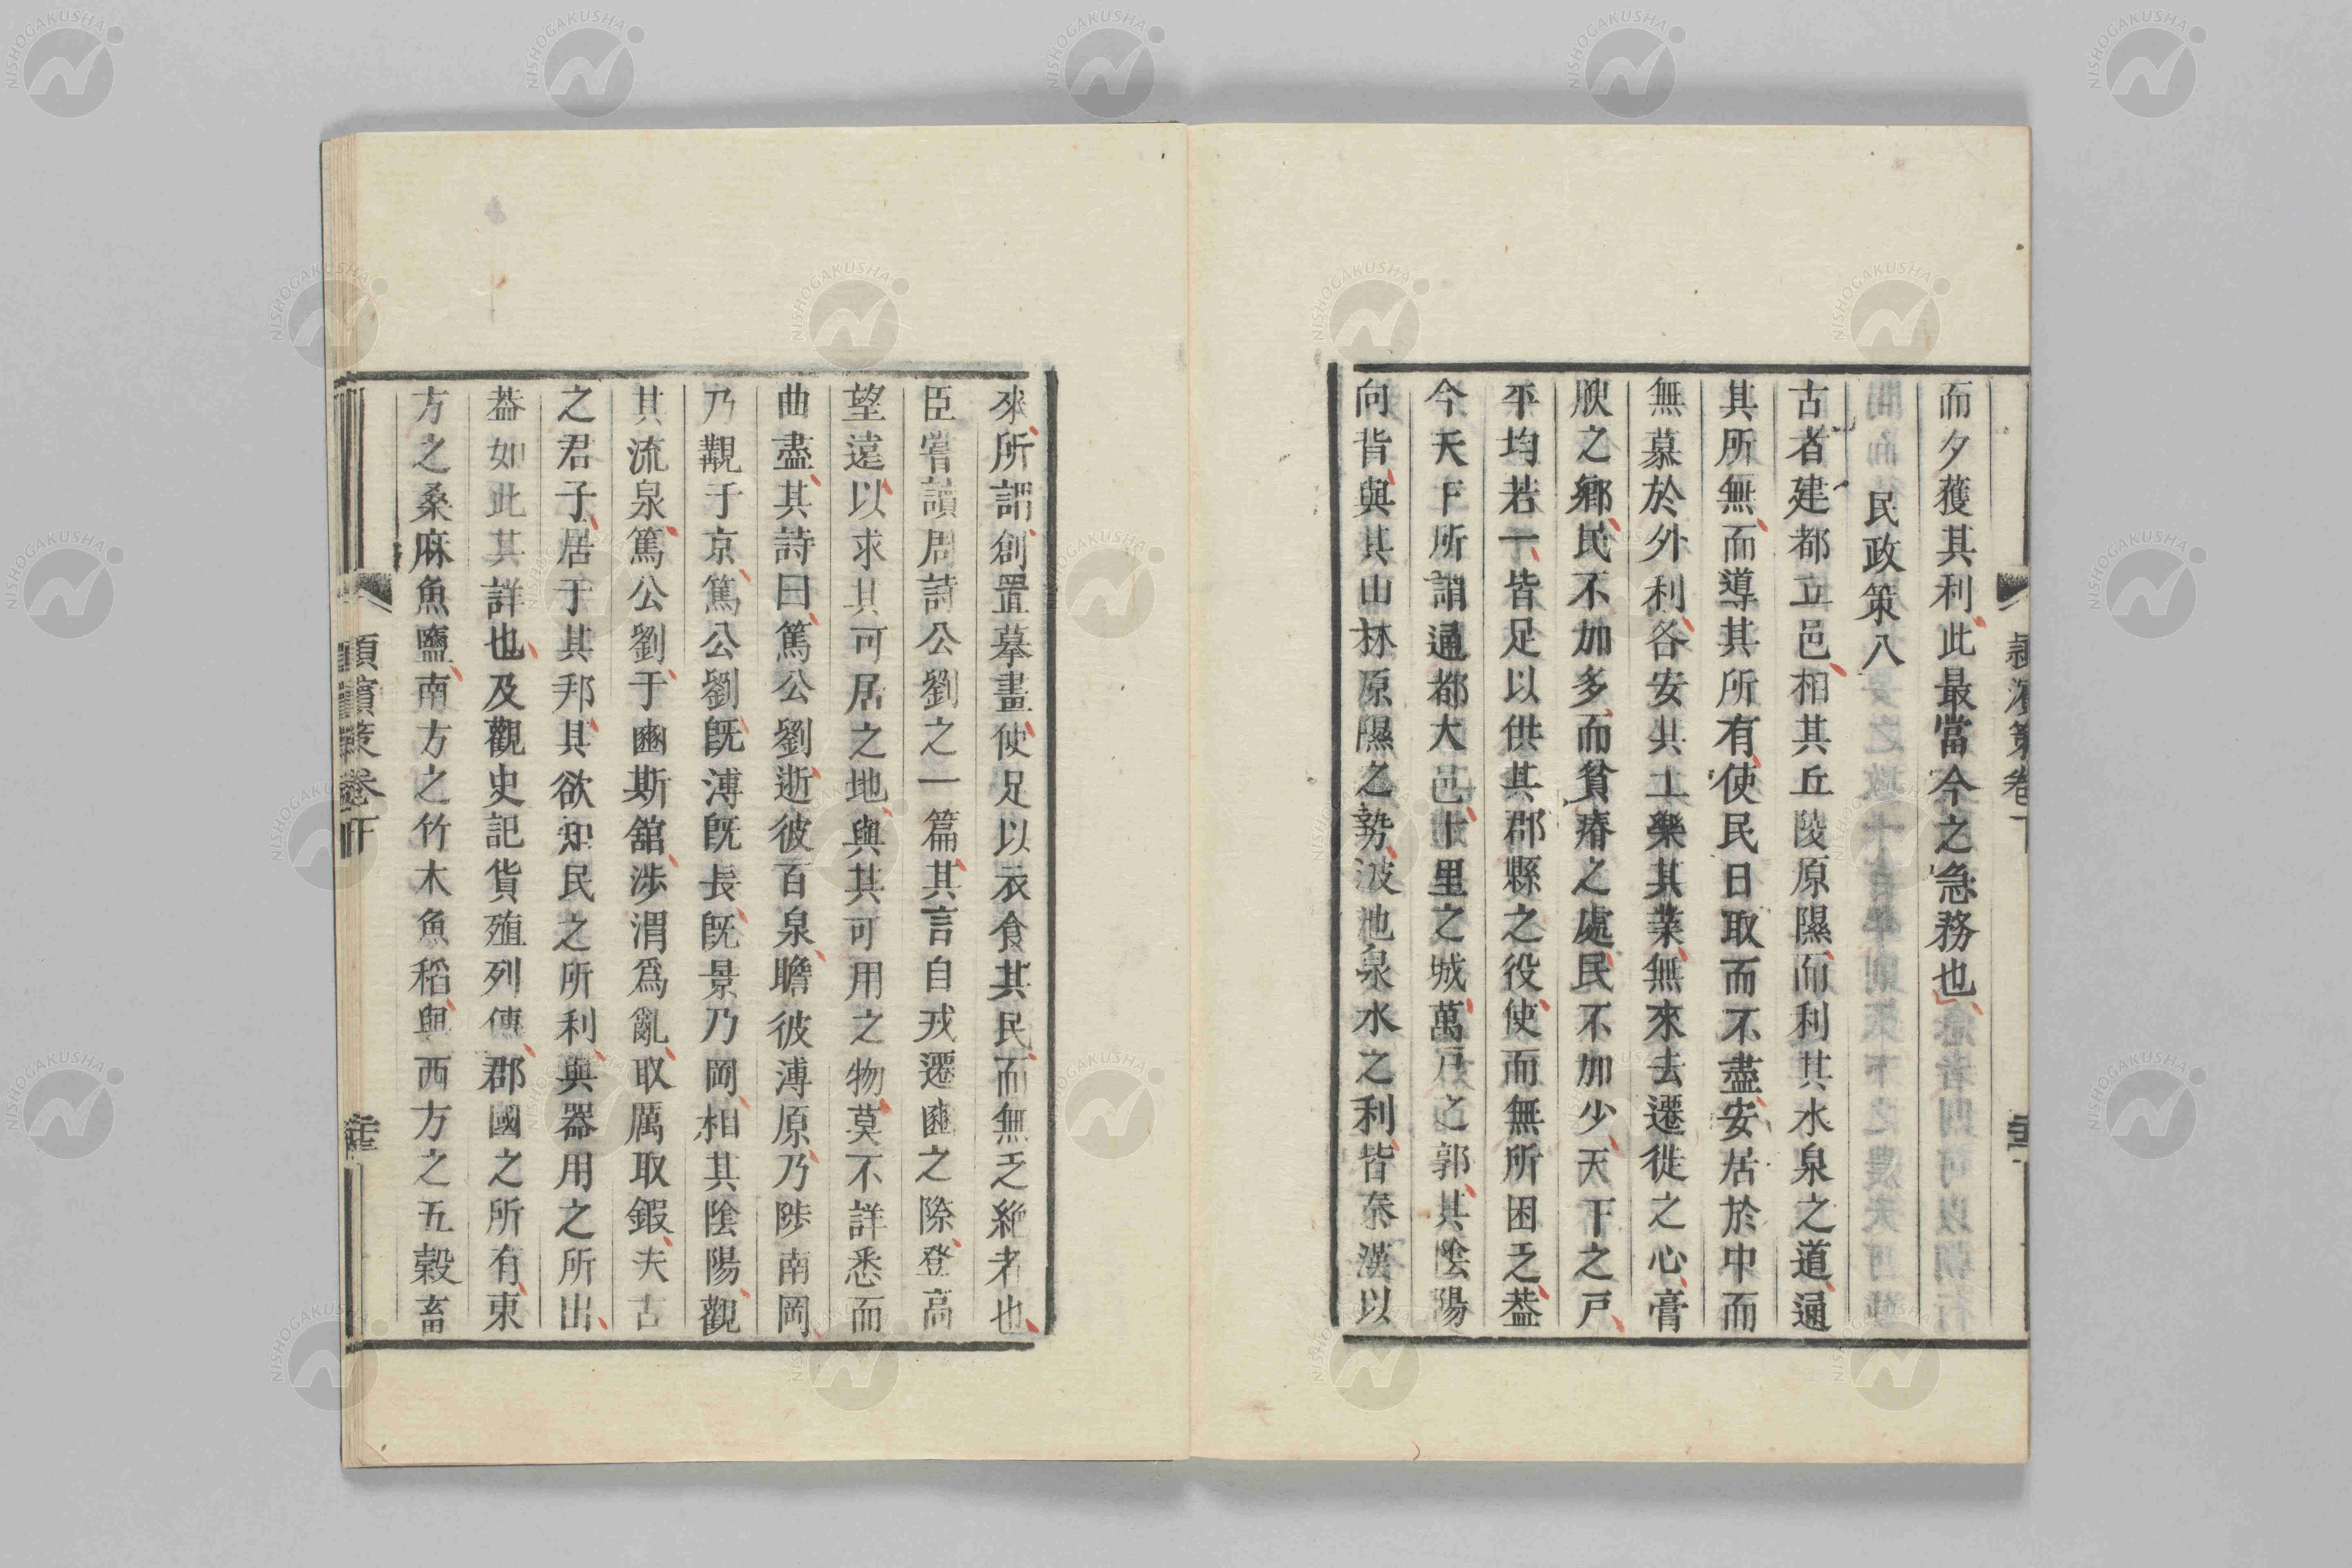 而夕獲其利此最當今之急務也
民政策八
古者建都立邑相其丘陵原隰而利其水泉之道通
其所無而導其所有使民日取而不盡安居於中而
無慕於外利各安其土樂其業無來去遷徙之心膏
腴之鄉民不加多而貧瘠之處民不加少天下之戸
平均若一皆足以供其郡縣之役使而無所困乏葢
今天下所謂通都大邑十里之城萬戸之郭其陰陽
向背與其山林原隰之勢波池泉水之利皆秦漢以
來所謂創置摹畫使足以衣食其民而無乏絶者也
臣嘗讀周詩公劉之一篇其言自戎遷豳之際登高
望遠以求其可居之地與其可用之物莫不詳悉而
曲盡其詩曰篤公劉逝彼百泉瞻彼溥原乃陟南岡
乃覯于京篤公劉旣溥旣長旣景乃岡相其陰陽觀
其流泉篤公劉于豳斯舘涉渭爲亂取厲取鍜夫古
之君子居于其邦其欲知民之所利與器用之所出
葢如此其詳也及觀史記貨殖列傳郡國之所有東
方之桑麻魚鹽南方之竹木魚稻與西方之五穀畜
頴濱策卷下